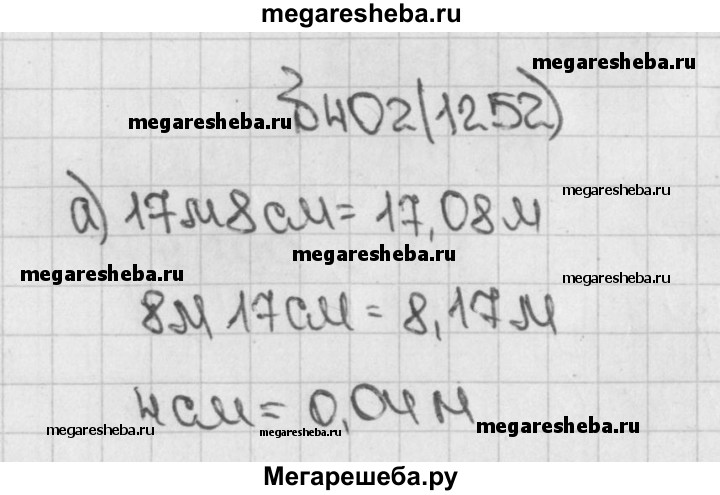 megaresheba.ru
megaresheba.ru
402(1252)
megaresheba.ru
megaresheba.ru
а) 17м8см=17,08м
megaresheba.ru
megaresheba.ru
megaresheba.ru
8м 17см=8,17м
4см=0,04м
megaresheba.ru
megaresheba.ru
megaresheba.ru
Мегарешеба.ру